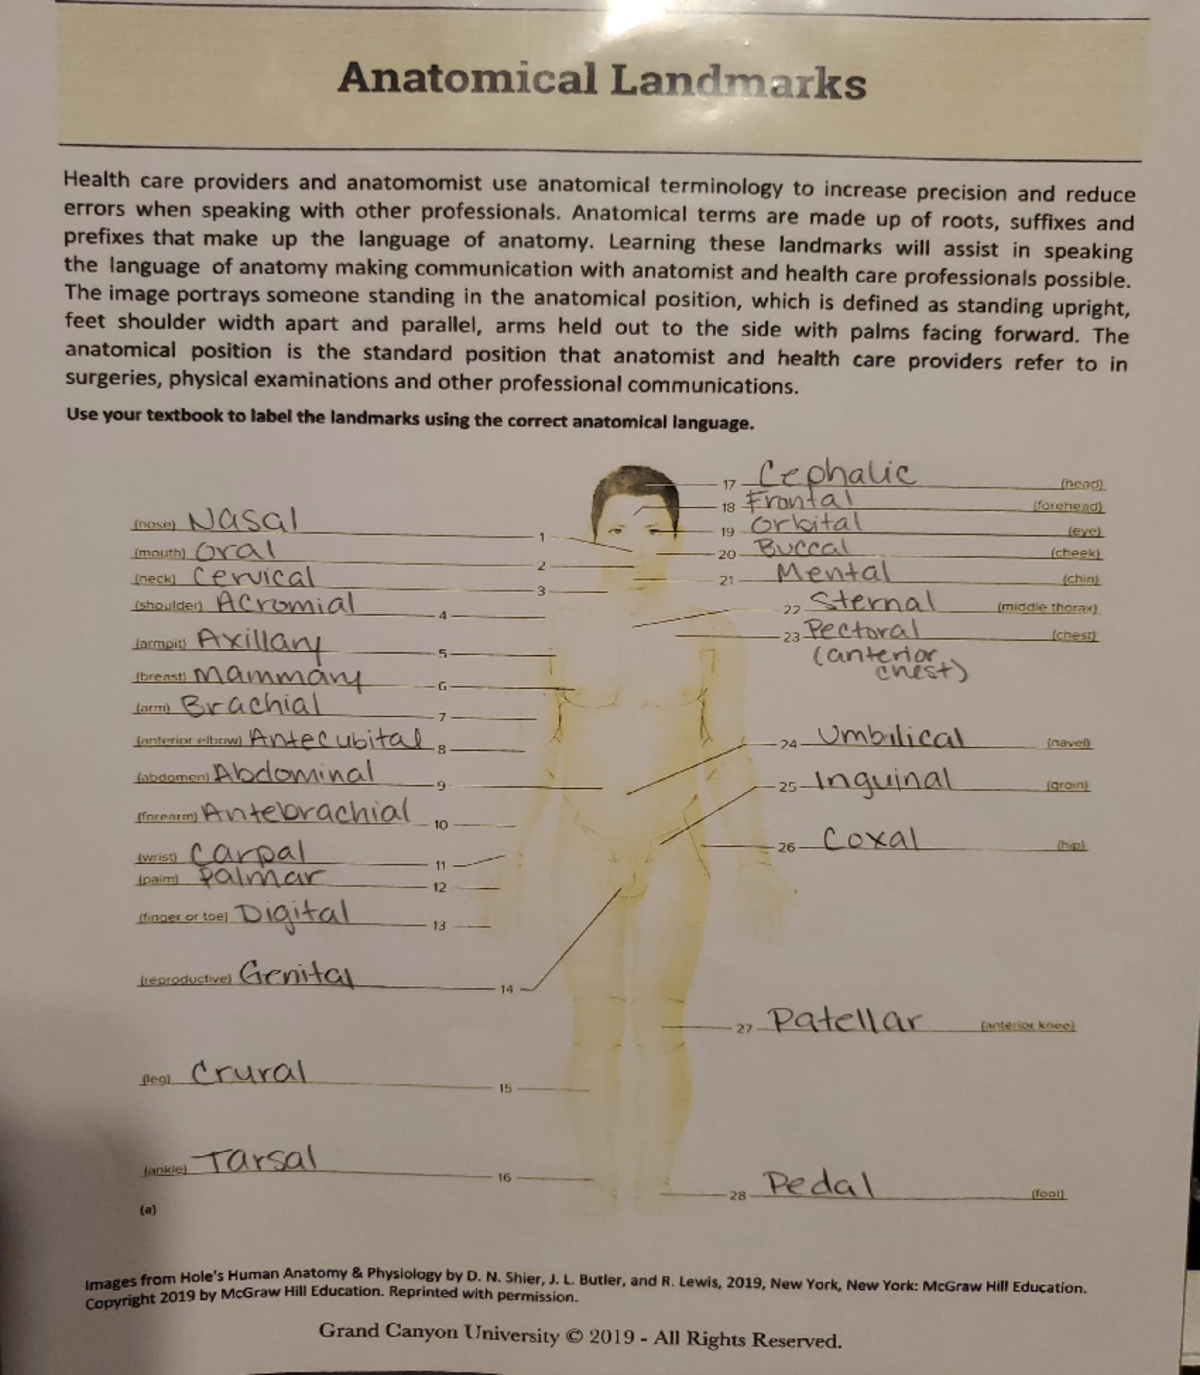 Anatomical Landmarks
Health care providers and anatomomist use anatomical terminology to increase precision and reduce
errors when speaking with other professionals. Anatomical terms are made up of roots, suffixes and
prefixes that make up the language of anatomy. Learning these landmarks will assist in speaking
the language of anatomy making communication with anatomist and health care professionals possible.
The image portrays someone standing in the anatomical position, which is defined as standing upright,
feet shoulder width apart and parallel, arms held out to the side with palms facing forward. The
anatomical position is the standard position that anatomist and health care providers refer to in
surgeries, physical examinations and other professional communications.
Use your textbook to label the landmarks using the correct anatomical language.
(nose) Nasal 1
(mouth) Oral 2
(neck) Cervical 3
(shoulder) Acromial 4
(armpit) Axillary 5
(breast) Mammary 6
(arm) Brachial 7
(anterior elbow) Antecubital 8
(abdomen) Abdominal 9
(forearm) Antebrachial 10
(wrist) Carpal 11
(palm) Palmar 12
(finger or toe) Digital 13
(reproductive) Genital 14
(leg) Crural 15
(ankle) Tarsal 16
(a)
17 Cephalic (head)
18 Frontal (forehead)
19 Orbital (eye)
20 Buccal (cheek)
21 Mental (chin)
22 Sternal (middle thorax)
23 Pectoral (chest)
(anterior
chest)
24 Umbilical (navel)
25 Inguinal (groin)
26 Coxal (hip)
27 Patellar (anterior knee)
28 Pedal (foot)
Images from Hole's Human Anatomy & Physiology by D. N. Shier, J. L. Butler, and R. Lewis, 2019, New York, New York: McGraw Hill Education.
Copyright 2019 by McGraw Hill Education. Reprinted with permission.
Grand Canyon University © 2019 - All Rights Reserved.